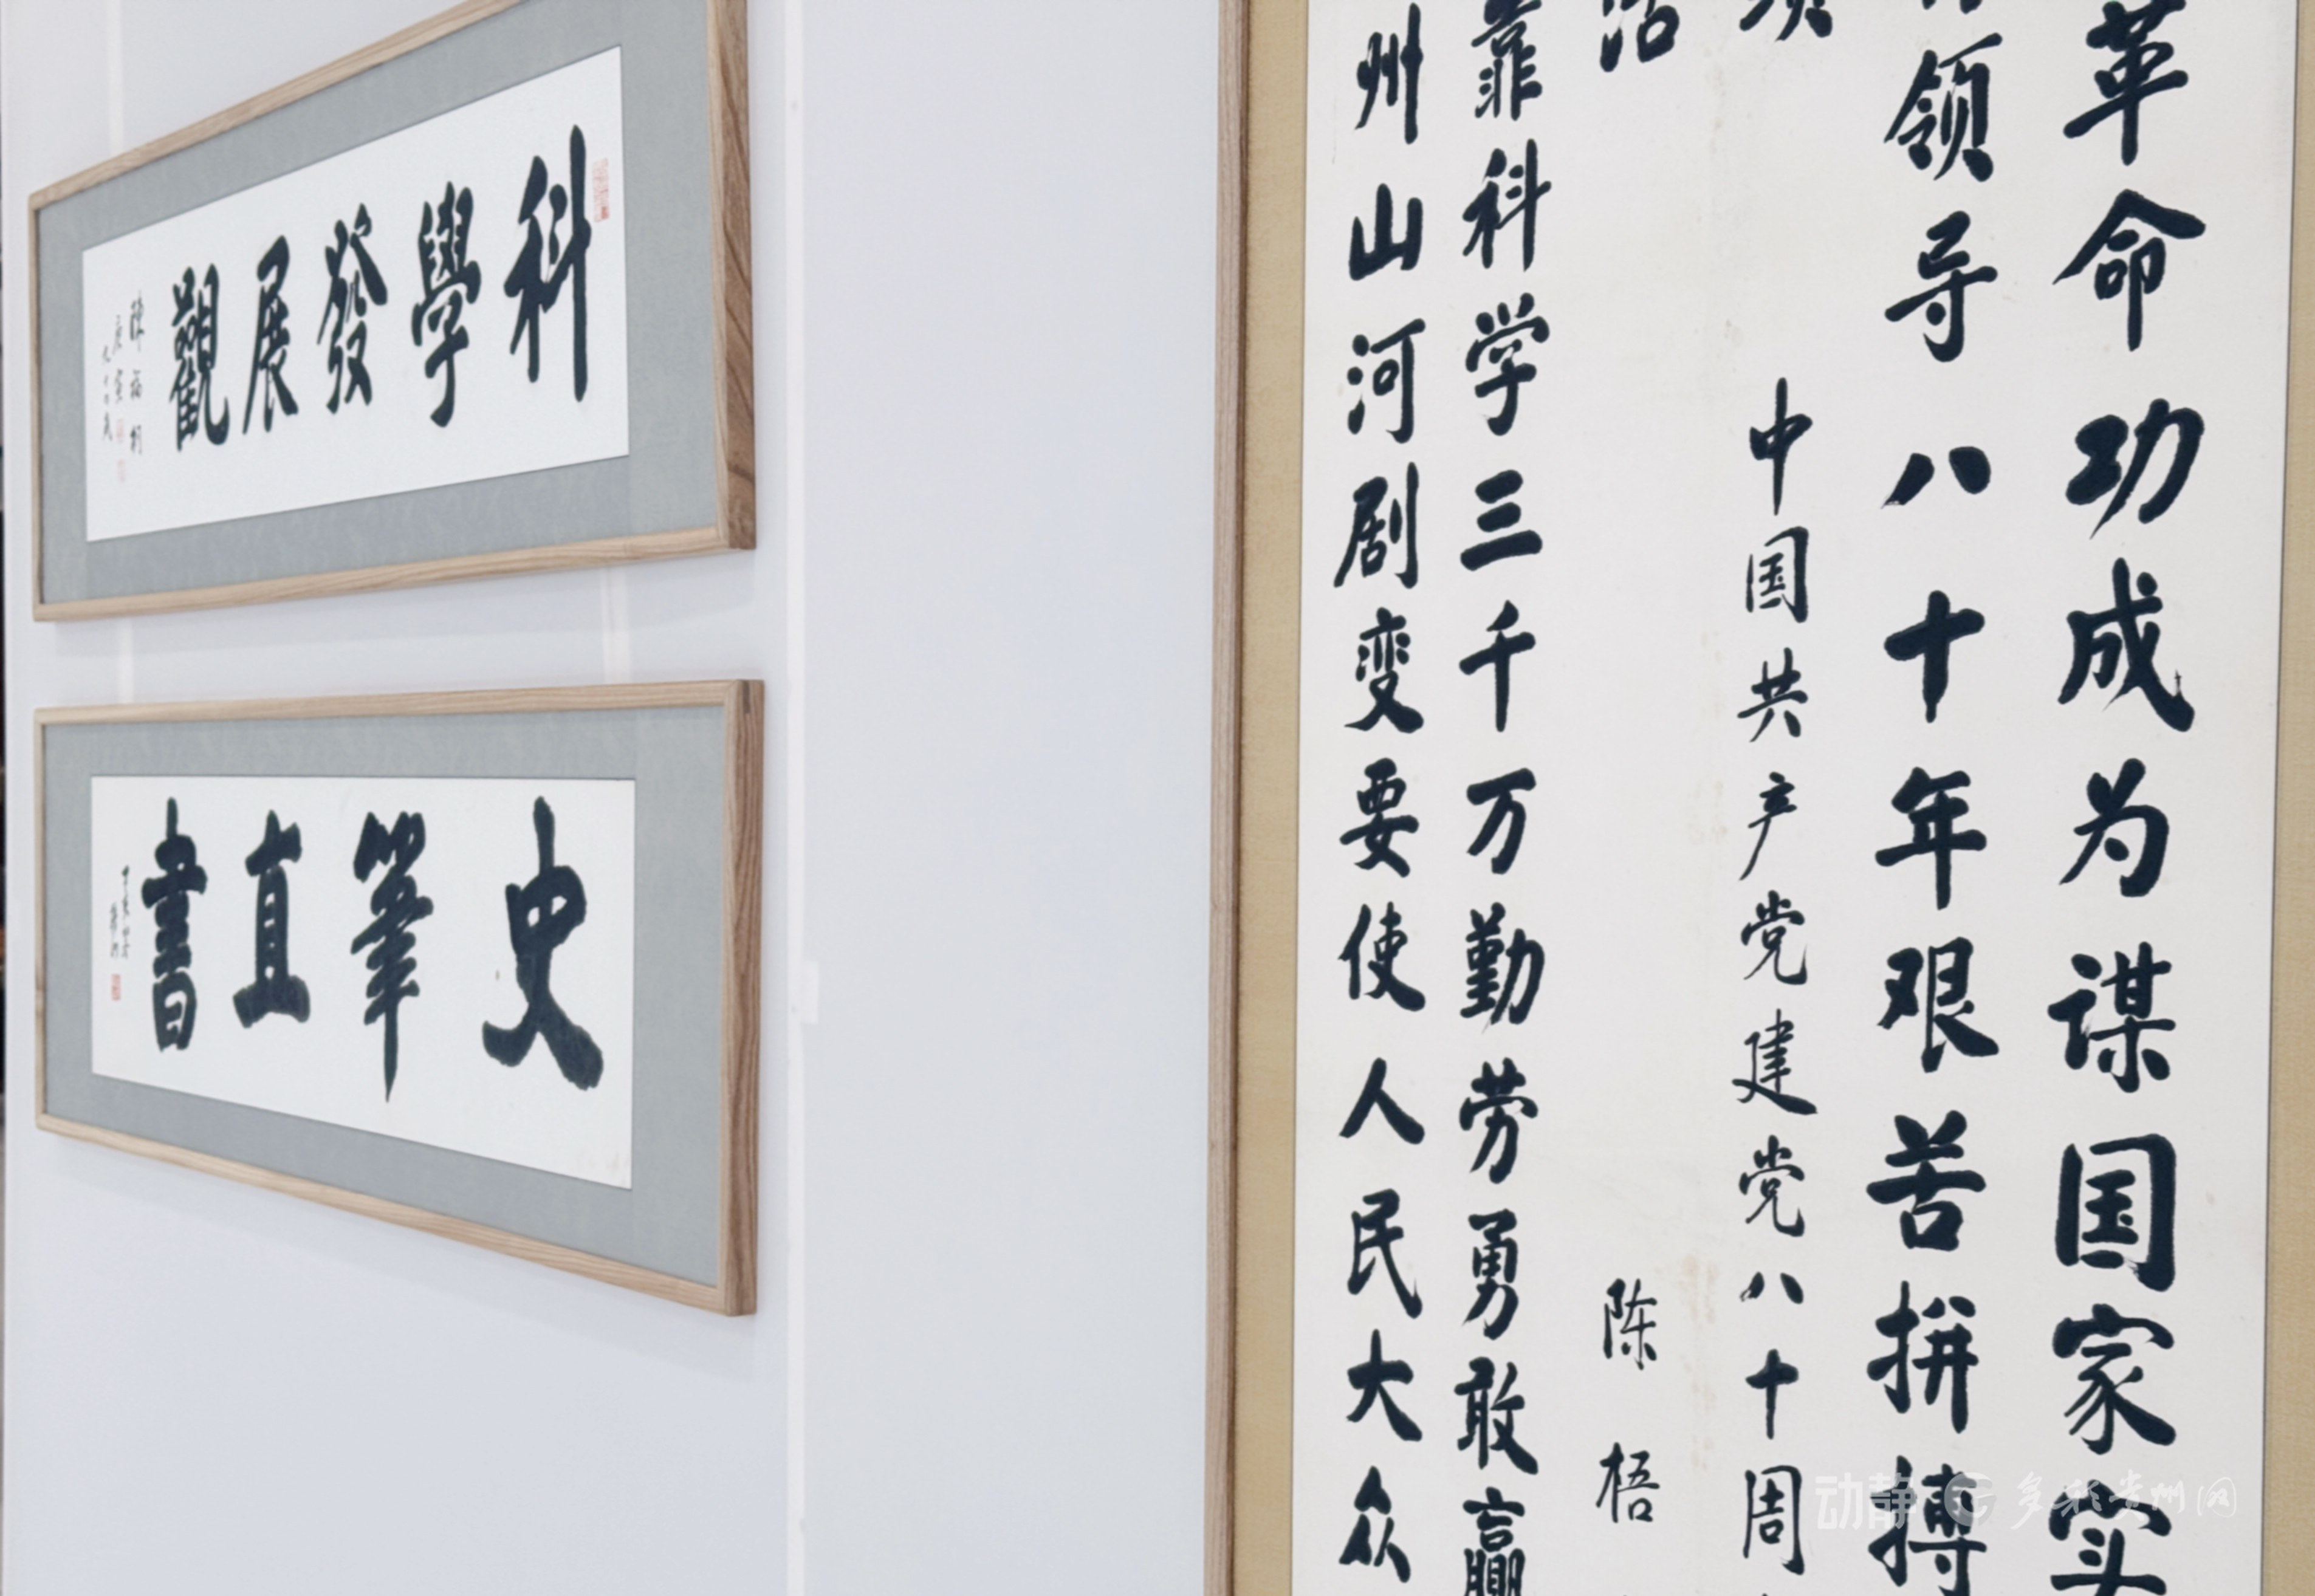 科學發展觀
史筆直書
革命功成为谋国家实
领导八十年艰苦拼搏
中国共产党建党八十周
陈梧
靠科学三千万勤劳勇敢赢
州山河剧变要使人民大众
动静
多彩贵州网